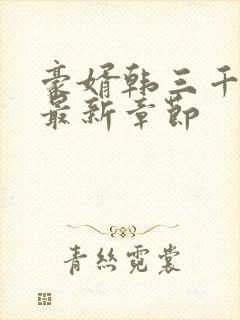 豪婿韩三千
最新章節
青絲霓裳